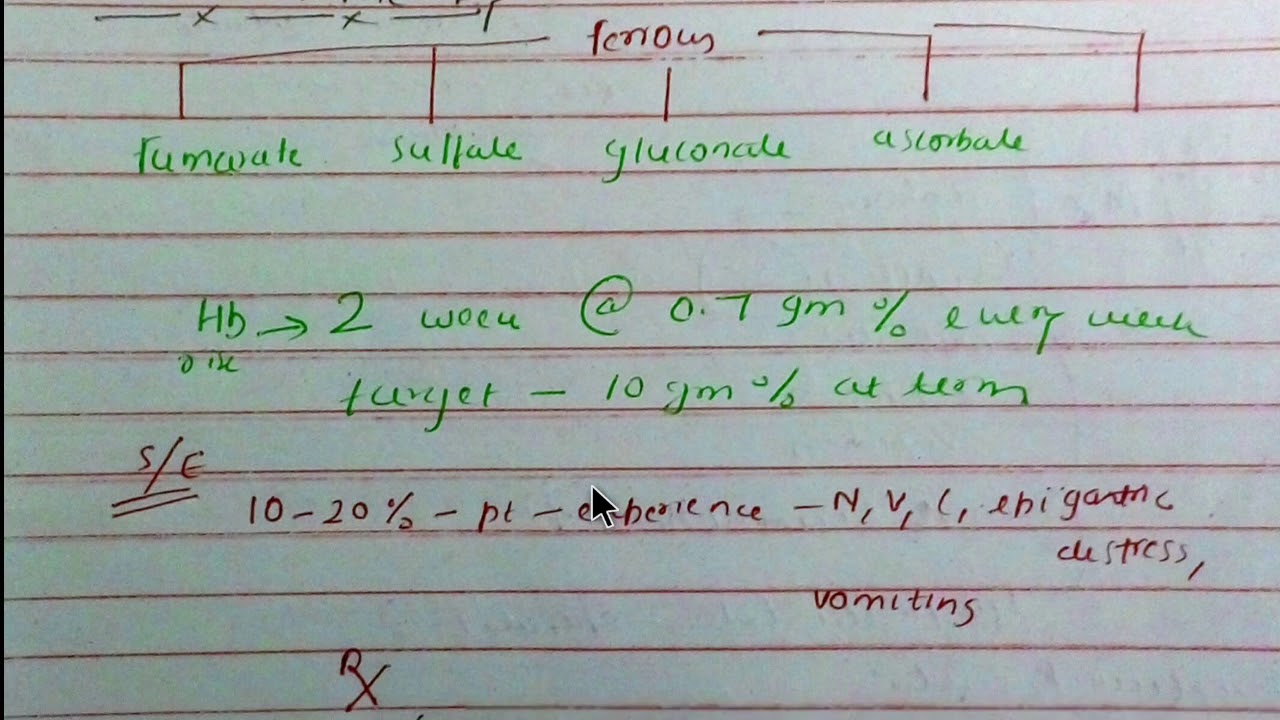 ferrous
fumarate sulfate gluconate ascorbate
Hb → 2 week @ 0.7 gm % every week
rise
target - 10 gm % at term
S/E
10-20% - pt - experience - N, V, C, epigastric
distress,
vomiting
Rx